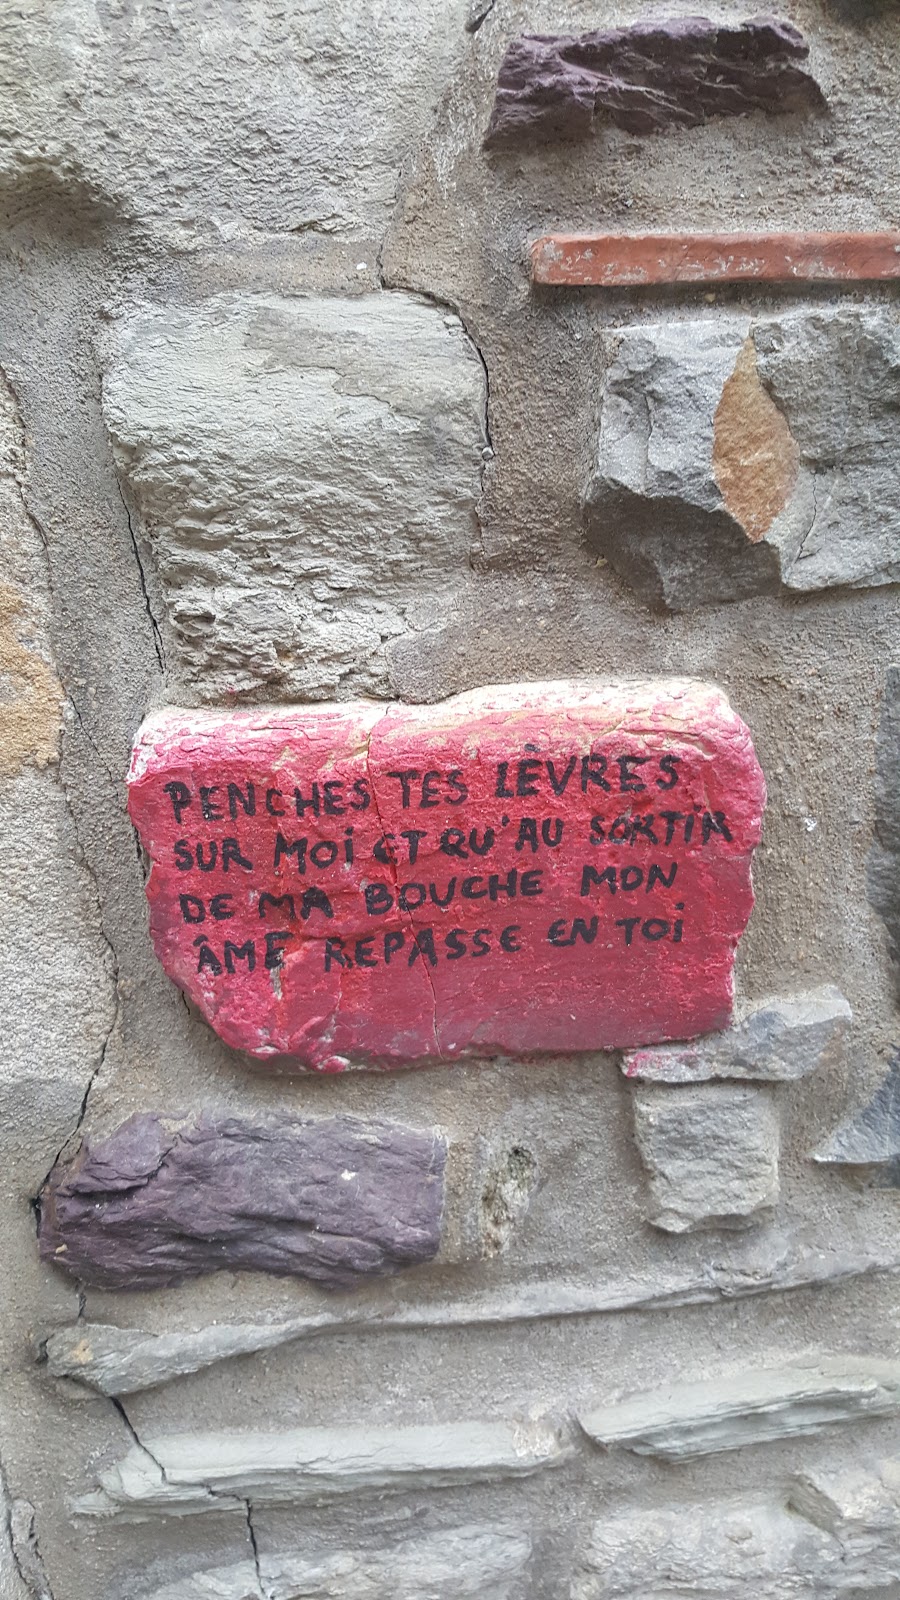 PENCHES TES LÈVRES
SUR MOI ET QU'AU SORTIR
DE MA BOUCHE MON
ÂME REPASSE EN TOI